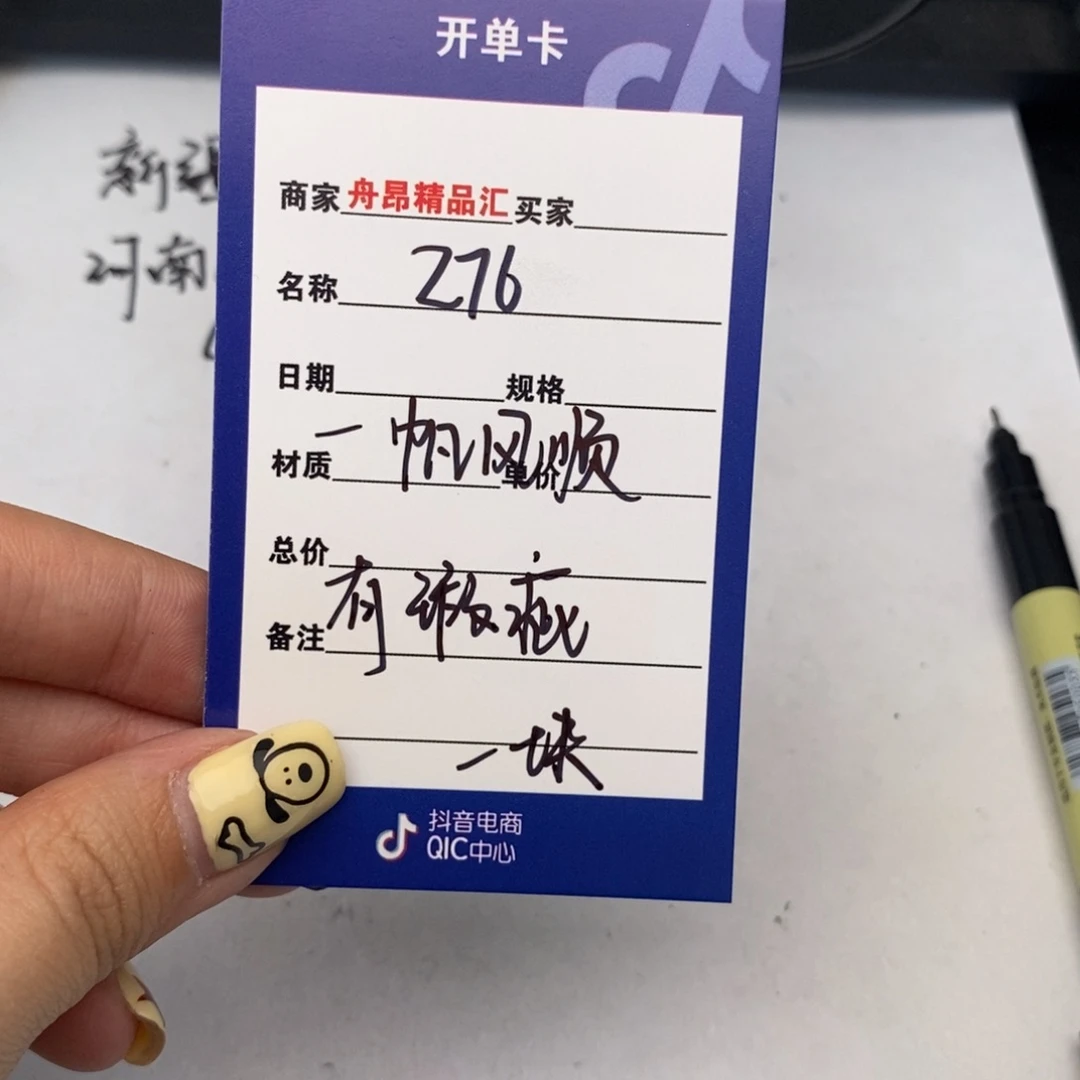 开单卡
新疆
河南
商家舟昂精品汇买家
名称 276
日期 规格
一帆风顺
材质 单价
总价
有瑕疵
备注
一块
抖音电商
QIC中心